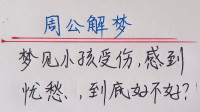 周公解梦
梦见小孩受伤,感到
忧愁、到底好不好?